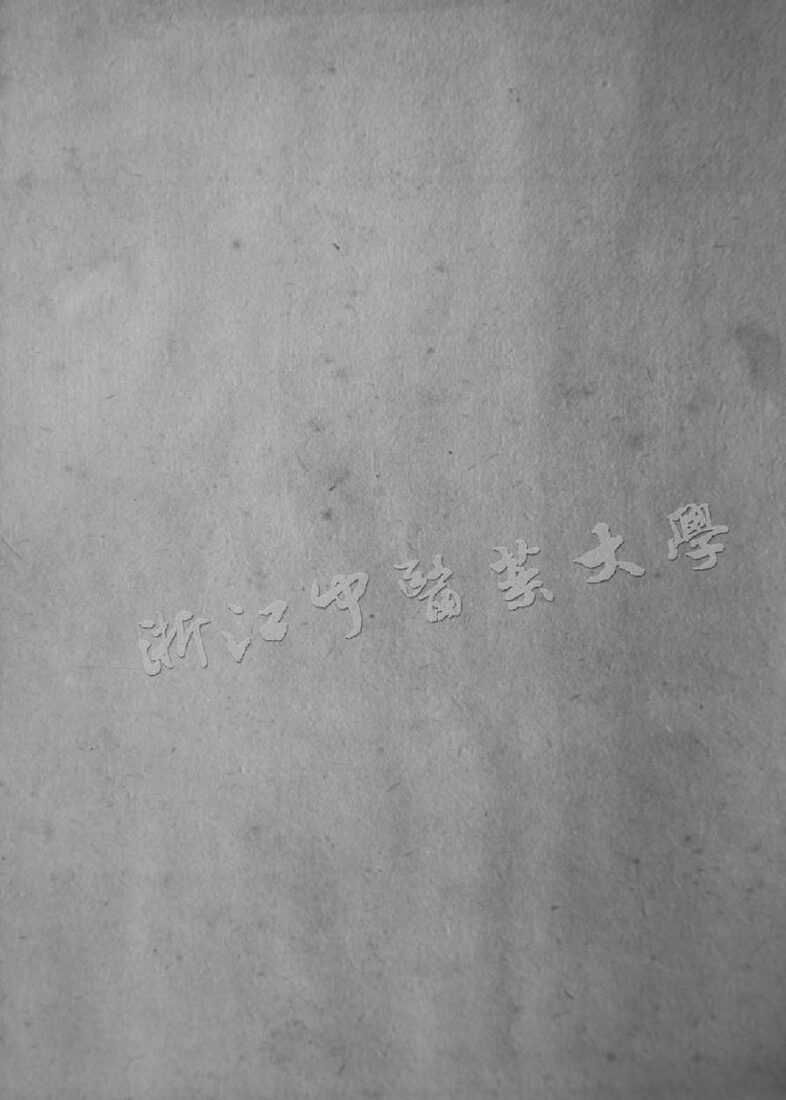 浙江中醫药大學